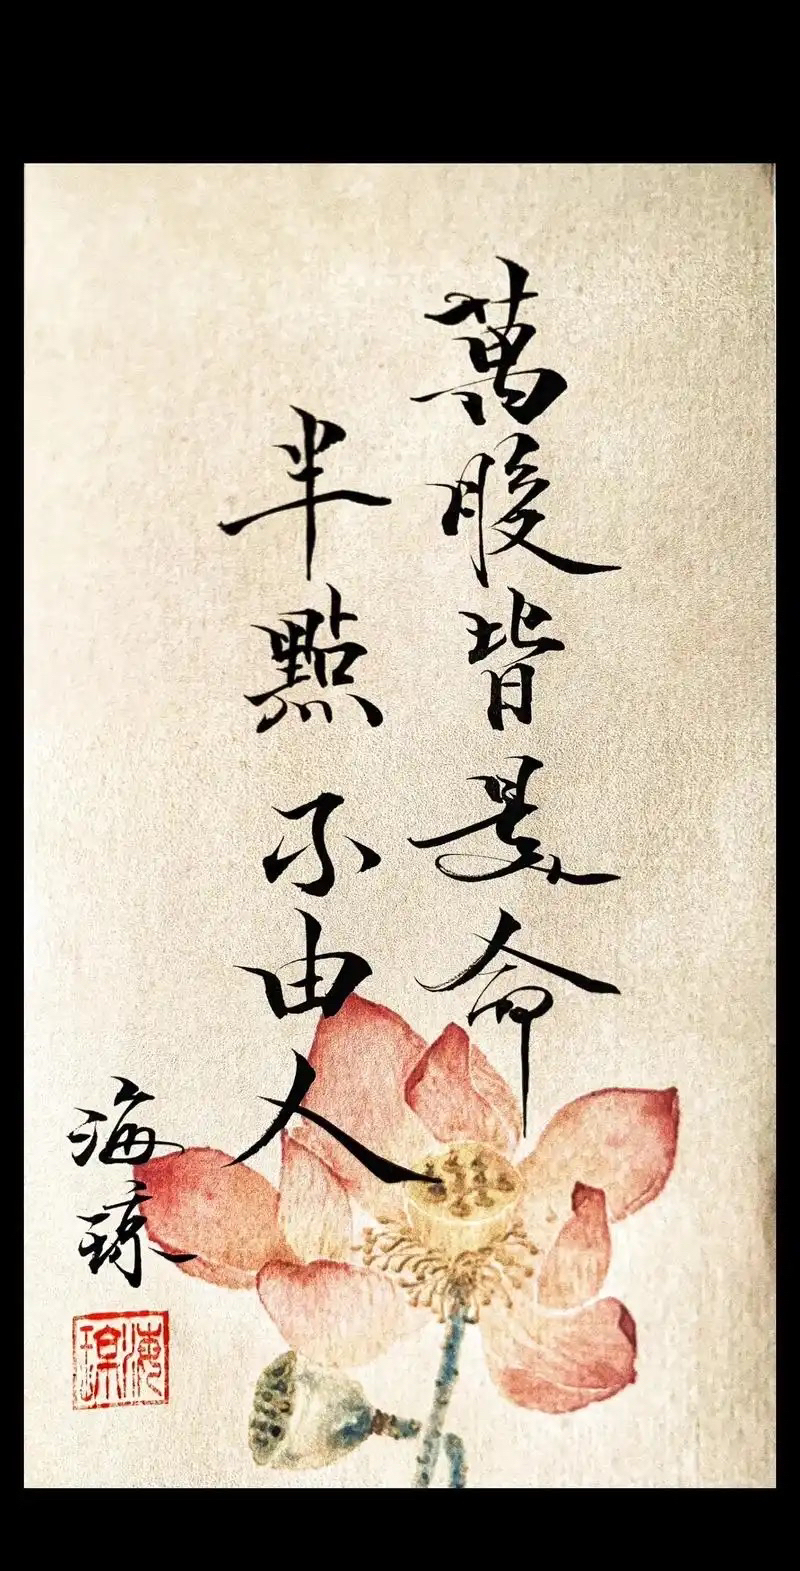 萬般皆是命
半點不由人
海琼
海琼